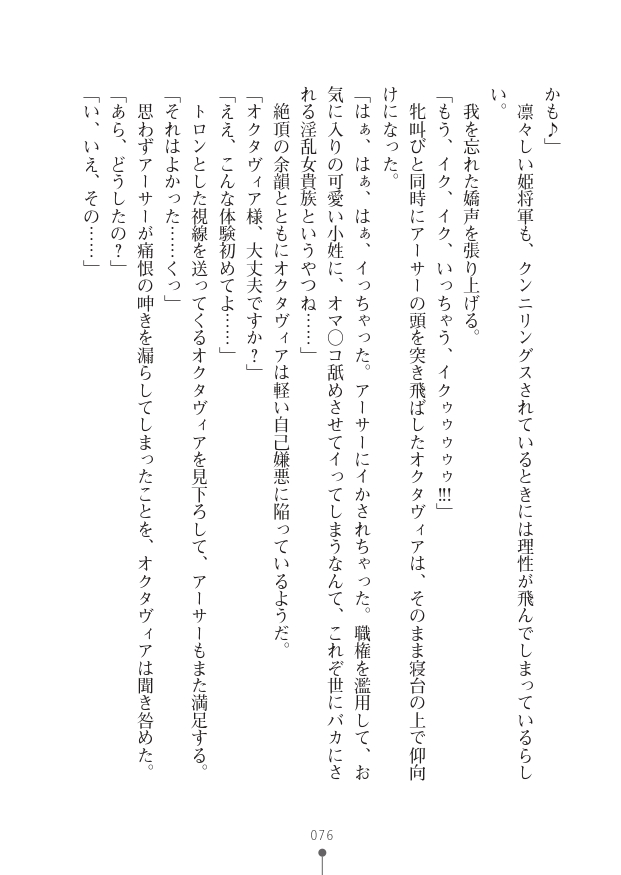 かも♪」
　凛々しい姫将軍も、クンニリングスされているときには理性が飛んでしまっているらし
い。
　我を忘れた嬌声を張り上げる。
「もう、イク、イク、いっちゃう、イクゥゥゥゥゥ!!!」
　牝叫びと同時にアーサーの頭を突き飛ばしたオクタヴィアは、そのまま寝台の上で仰向
けになった。
「はぁ、はぁ、はぁ、イっちゃった。アーサーにイかされちゃった。職権を濫用して、お
気に入りの可愛い小姓に、オマ○コ舐めさせてイってしまうなんて、これぞ世にバカにさ
れる淫乱女貴族というやつね……」
　絶頂の余韻とともにオクタヴィアは軽い自己嫌悪に陥っているようだ。
「オクタヴィア様、大丈夫ですか？」
「ええ、こんな体験初めてよ……」
　トロンとした視線を送ってくるオクタヴィアを見下ろして、アーサーもまた満足する。
「それはよかった……くっ」
　思わずアーサーが痛恨の呻きを漏らしてしまったことを、オクタヴィアは聞き咎めた。
「あら、どうしたの？」
「い、いえ、その……」
076